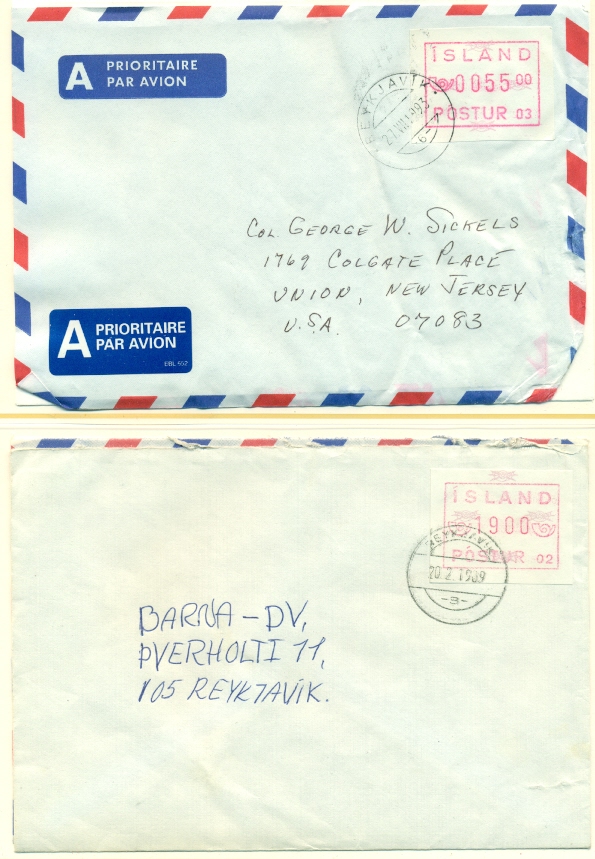 A PRIORITAIRE
PAR AVION
ÍSLAND
0055 00
PÓSTUR 03
REYKJAVÍK
COL. GEORGE W. SICKELS
1769 COLGATE PLACE
UNION, NEW JERSEY
U.S.A. 07083
A PRIORITAIRE
PAR AVION
EBL 552
ÍSLAND
1900
PÓSTUR 02
REYKJAVÍK
20.2.1989
-3-
BARNA-DV,
ÞVERHOLTI 11,
105 REYKJAVÍK.